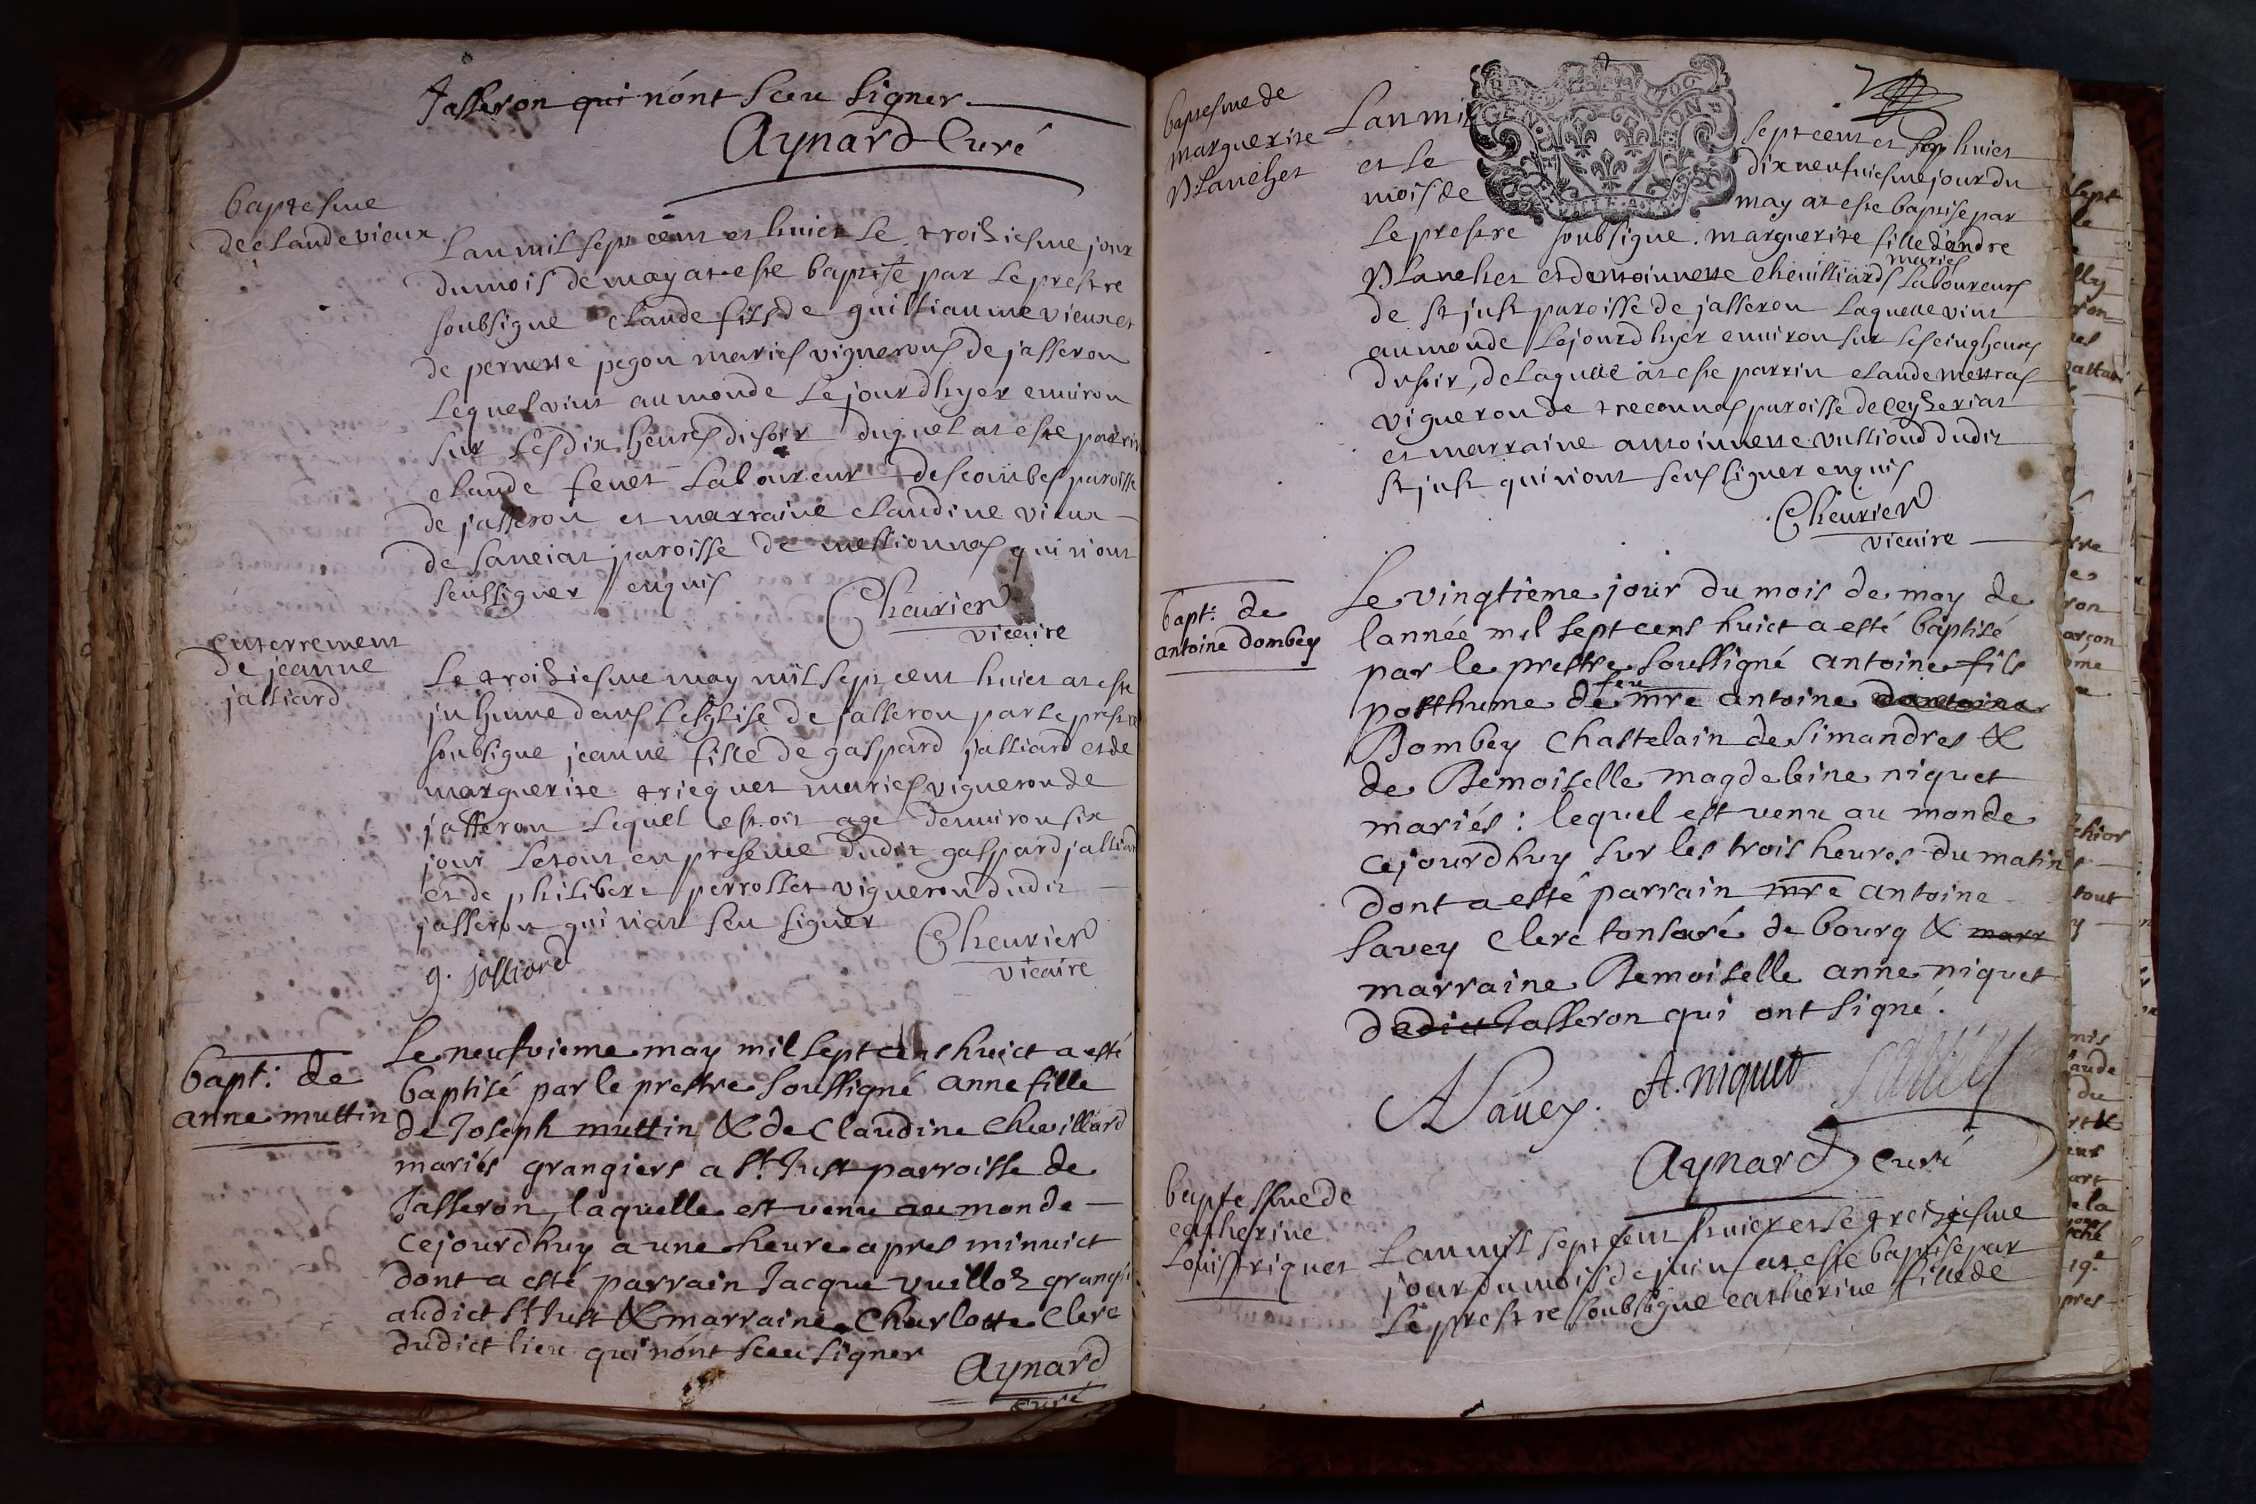 Jasseron qui nónt sceu signer
Aynard Curé
baptesme
de claude vieux
Lan mil sept cent et huict le troiziesme jour
du mois de may at este baptisé par le prestre
soubsigne claude fils de guilliaume vieux et
de pernette pegon mariés vignerons de jasseron
lequel vint au monde le jourdhyer environ
sur les dix heures du soir duquel at este parrin
claude fenet laboureur des combes paroisse
de jasseron et marraine claudine vieux
de sanciat paroisse de meillionnas qui n'ont
seu signer enquis
Cheurier
vicaire
enterrement
de jeanne
jalliard
Le troiziesme may mil sept cent huict at este
inhume dans leglise de jasseron par le prestre
soubsigne jeanne fille de gaspard jalliard et de
marguerite tricquet mariés vigneron de
jasseron lequel estoit age denuiron six
jour le tout en presence dudit gaspard jalliard
et de philibert perrollet vigneron dudit
jasseron qui n'at seu signer
Cheurier
vicaire
g. jalliard
bapt: de
anne muttin
Le neufvieme may mil sept cens huict a esté
baptisé par le prestre soussigné anne fille
de Joseph muttin & de Claudine Chevillard
mariés grangiers a St Just parroisse de
Jasseron, laquelle est venu au monde
cejourdhuy a une heure apres minuict
dont a esté parrain Jacque vuilloz grangier
audict St Just & marraine Charlotte Clerc
dudict lieu qui nónt sceu signer
Aynard
curé
baptesme de
marguerite
blanchet
Lan mil sept cent et huict
et le dix neufuiesme jour du
mois de may at este baptisé par
le prestre soubsigne marguerite fille dandre
mariés
blanchet et dentoinnette cheuilliard laboureurs
de st just paroisse de jasseron laquelle vint
au monde le jourdhyer enuiron sur les cinq heures
du soir, de laquelle at este parrin claude mettras
vigneron de treconnas paroisse de ceyzeriat
et marraine antoinnette vullioud dudit
st just qui n'ont seu signer enquis
Cheurier
vicaire
bapt: de
antoine Dombey
Le vingtieme jour du mois de may de
lannée mil sept cens huict a esté baptisé
par le prestre soussigné antoine fils
feu
posthume de mre antoine
Dombey Chastelain de Simandres &
de Demoiselle magdeleine niquet
mariés : lequel est venu au monde
cejourdhuy sur les trois heures du matin
dont a esté parrain mre antoine
Savey Clerc tonsuré de bourg & marr
marraine Demoiselle anne niquet
dudict Jasseron qui ont signé.
A Sauey. A. niquet
Aynard Curé
baptesme de
catherine
Louis triquet
Lan mil sept cent huict et le treiziesme
jour du mois de juin at este baptisé par
le prestre soubsigne catherine fille de